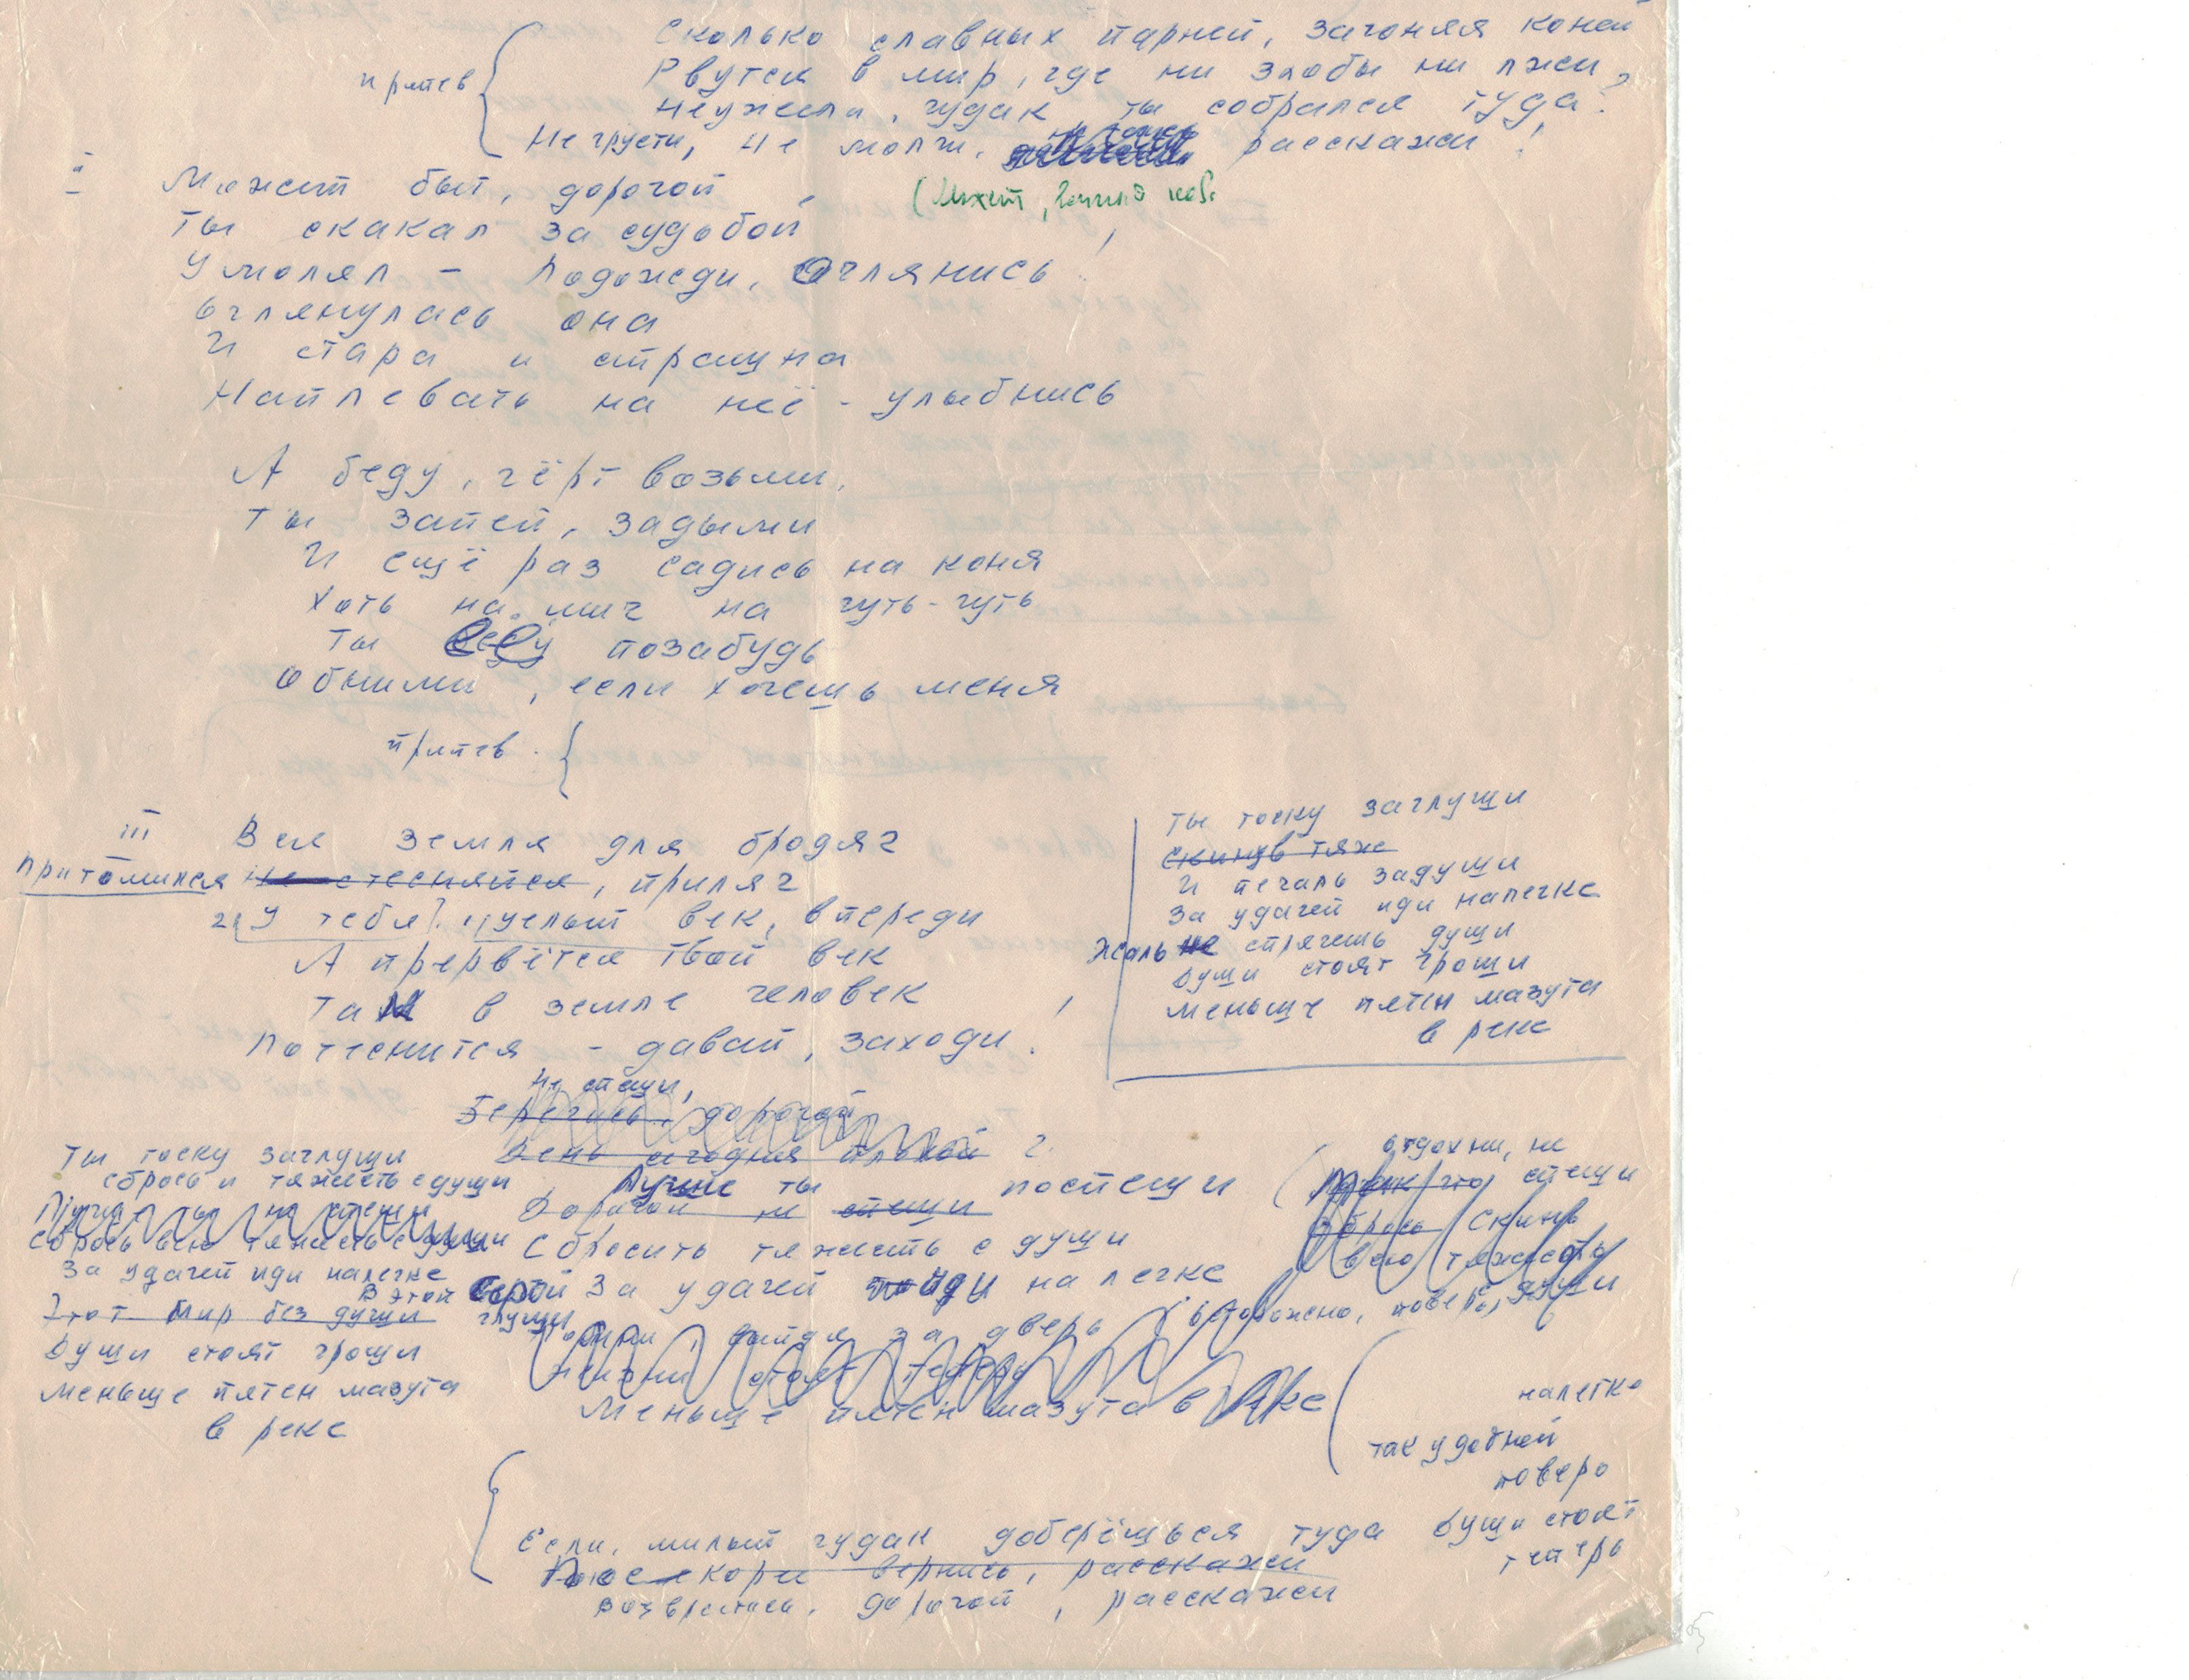 Сколько славных парней, загоняя коней
припев
Рвутся в мир, где ни злобы ни лжи,
Неужели, чудак ты собрался туда?
Не грусти, не молчи, расскажи!
II
Может быт, дорогой
(Может,
Ты скакал за судьбой,
Умолял - Подожди, Оглянись!
Оглянулась она
И стара и страшна
Наплевать на неё - улыбнись
А беду, чёрт возьми,
Ты запей, задыми
И ещё раз садись на коня
Хоть на миг на чуть-чуть
Ты позабудь
Обними, если хочешь меня
припев
III
Вся земля для бродяг
Притомился Не стесняйся, приляг
2) У тебя 1) целый век, впереди
А прервётся твой век
Там в земле человек
Потеснится - давай, заходи!
Ты тоску заглуши
Скинув тяж
И печаль задуши
За удачей иди налегке
Жаль не спрячешь души
Души стоят гроши
Меньше пятен мазута
в реке
Не спеши,
Берегись, дорогой
День сегодня плохой
Лучше ты поспеши
Дорогой не спеши
Сбросить тяжесть с души
За удачей иди на легке
за дверь
Меньше пятен мазута в реке
Ты тоску заглуши
Сбрось и тяжесть с души
Лучше ты не спеши
Сбрось всю тяжесть с души
За удачей иди налегке
В этой глуши
Этот мир без души
Души стоят гроши
Меньше пятен мазута
в реке
Отдохни, не
спеши
Сбрось Скинь
всю тяжесть
с души
осторожено, поверь,
налегке
так удобней
поверь
Души стоят
теперь
Если, милый чудак доберёшься туда
вернись, расскажи
Возвратись, дорогой, расскажи